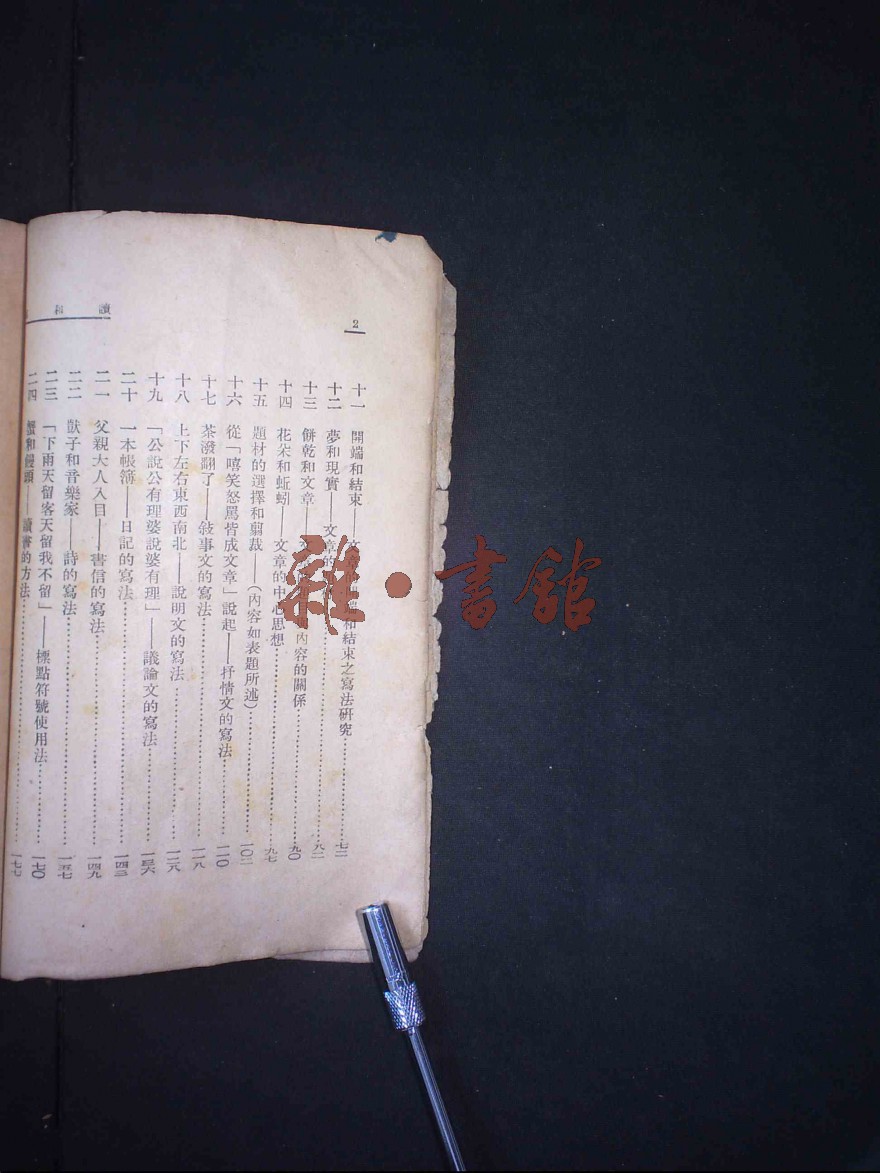 2
讀和
十一 開端和結束——文章開端和結束之寫法研究……七二
十二 夢和現實——文章的……八二
十三 餅乾和文章——內容的關係……九〇
十四 花朵和蚯蚓——文章的中心思想……九七
十五 題材的選擇和翦裁——(內容如表題所述)……一〇二
十六 從「嘻笑怒罵皆成文章」說起——抒情文的寫法……一一〇
十七 茶潑翻了——敍事文的寫法……一一八
十八 上下左右東西南北——說明文的寫法……一二八
十九 「公說公有理婆說婆有理」——議論文的寫法……一三六
二十 一本帳簿——日記的寫法……一四三
二一 父親大人入目——書信的寫法……一四九
二二 獃子和音樂家——詩的寫法……一五七
二三 「下雨天留客天留我不留」——標點符號使用法……一七〇
二四 蟹和饅頭——讀書的方法……一七七
雜·書館